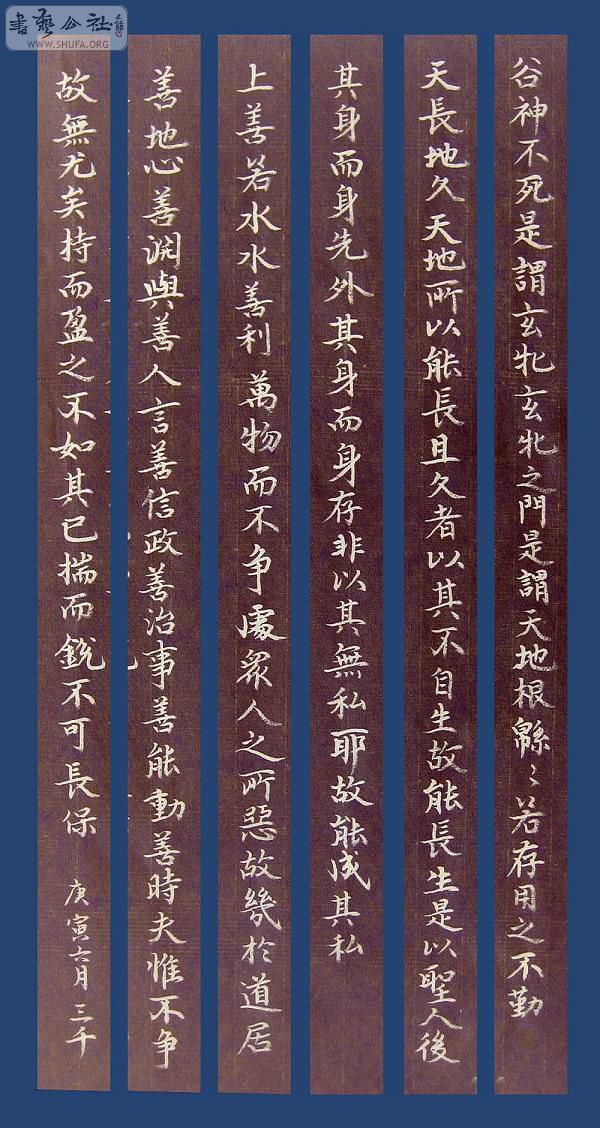 谷神不死是謂玄牝玄牝之門是謂天地根緜〻若存用之不勤
天長地久天地所以能長且久者以其不自生故能長生是以聖人後
其身而身先外其身而身存非以其無私耶故能成其私
上善若水水善利萬物而不争處衆人之所惡故幾於道居
善地心善淵與善人言善信政善治事善能動善時夫惟不争
故無尤矣持而盈之不如其已揣而銳不可長保
庚寅六月三千
書藝公社
WWW.SHUFA.ORG